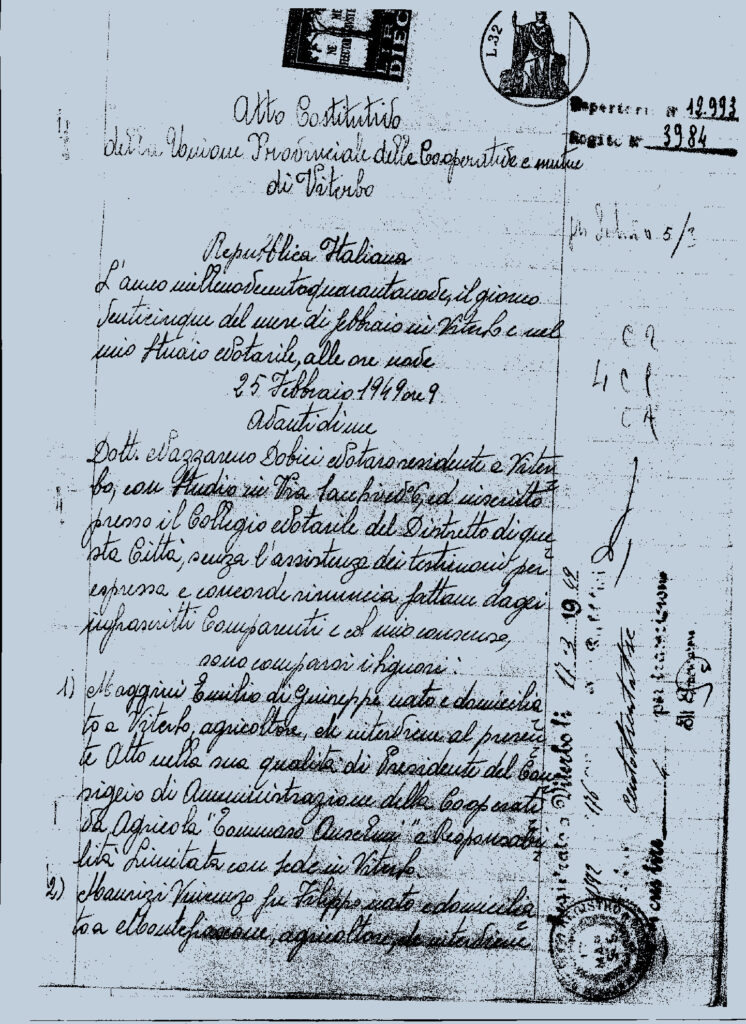 LIRE DIECI
L.32
Repertorio N° 12.993
Rogito N° 3984
Atto Costitutivo
della Unione Provinciale delle Cooperative e mutue
di Viterbo
5/3
Repubblica Italiana
L'anno millenovecentoquarantanove, il giorno
venticinque del mese di febbraio in Viterbo e nel
mio Studio Notarile, alle ore nove
25 Febbraio 1949 ore 9
Avanti di me
Dott. Nazzareno Dobici Notaro residente a Viter=
bo, con Studio in Via N°6, ed inscritto
presso il Collegio Notarile del Distretto di que=
sta Città, senza l'assistenza dei testimoni per
espressa e concorde rinuncia fattane dagli
infrascritti Comparenti e col mio consenso,
sono comparsi i Signori:
1) Maggini Emilio di Giuseppe nato e domicilia=
to a Viterbo, agricoltore, che interviene al presen=
te Atto nella sua qualità di Presidente del Con=
siglio di Amministrazione della Cooperati=
va Agricola "Tommaso Anselmi" a Responsabi=
lità Limitata con sede in Viterbo.
2) Maurizi Vincenzo fu Filippo nato e domicilia=
to a Montefiascone, agricoltore, che interviene
Registrato a Viterbo li 12.3 1949
centotrentatre
per trascrizione